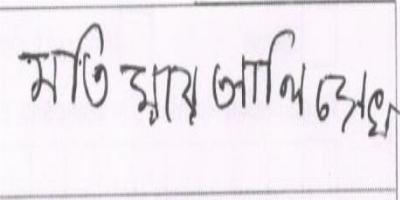 মতিয়ার আলি সেখ